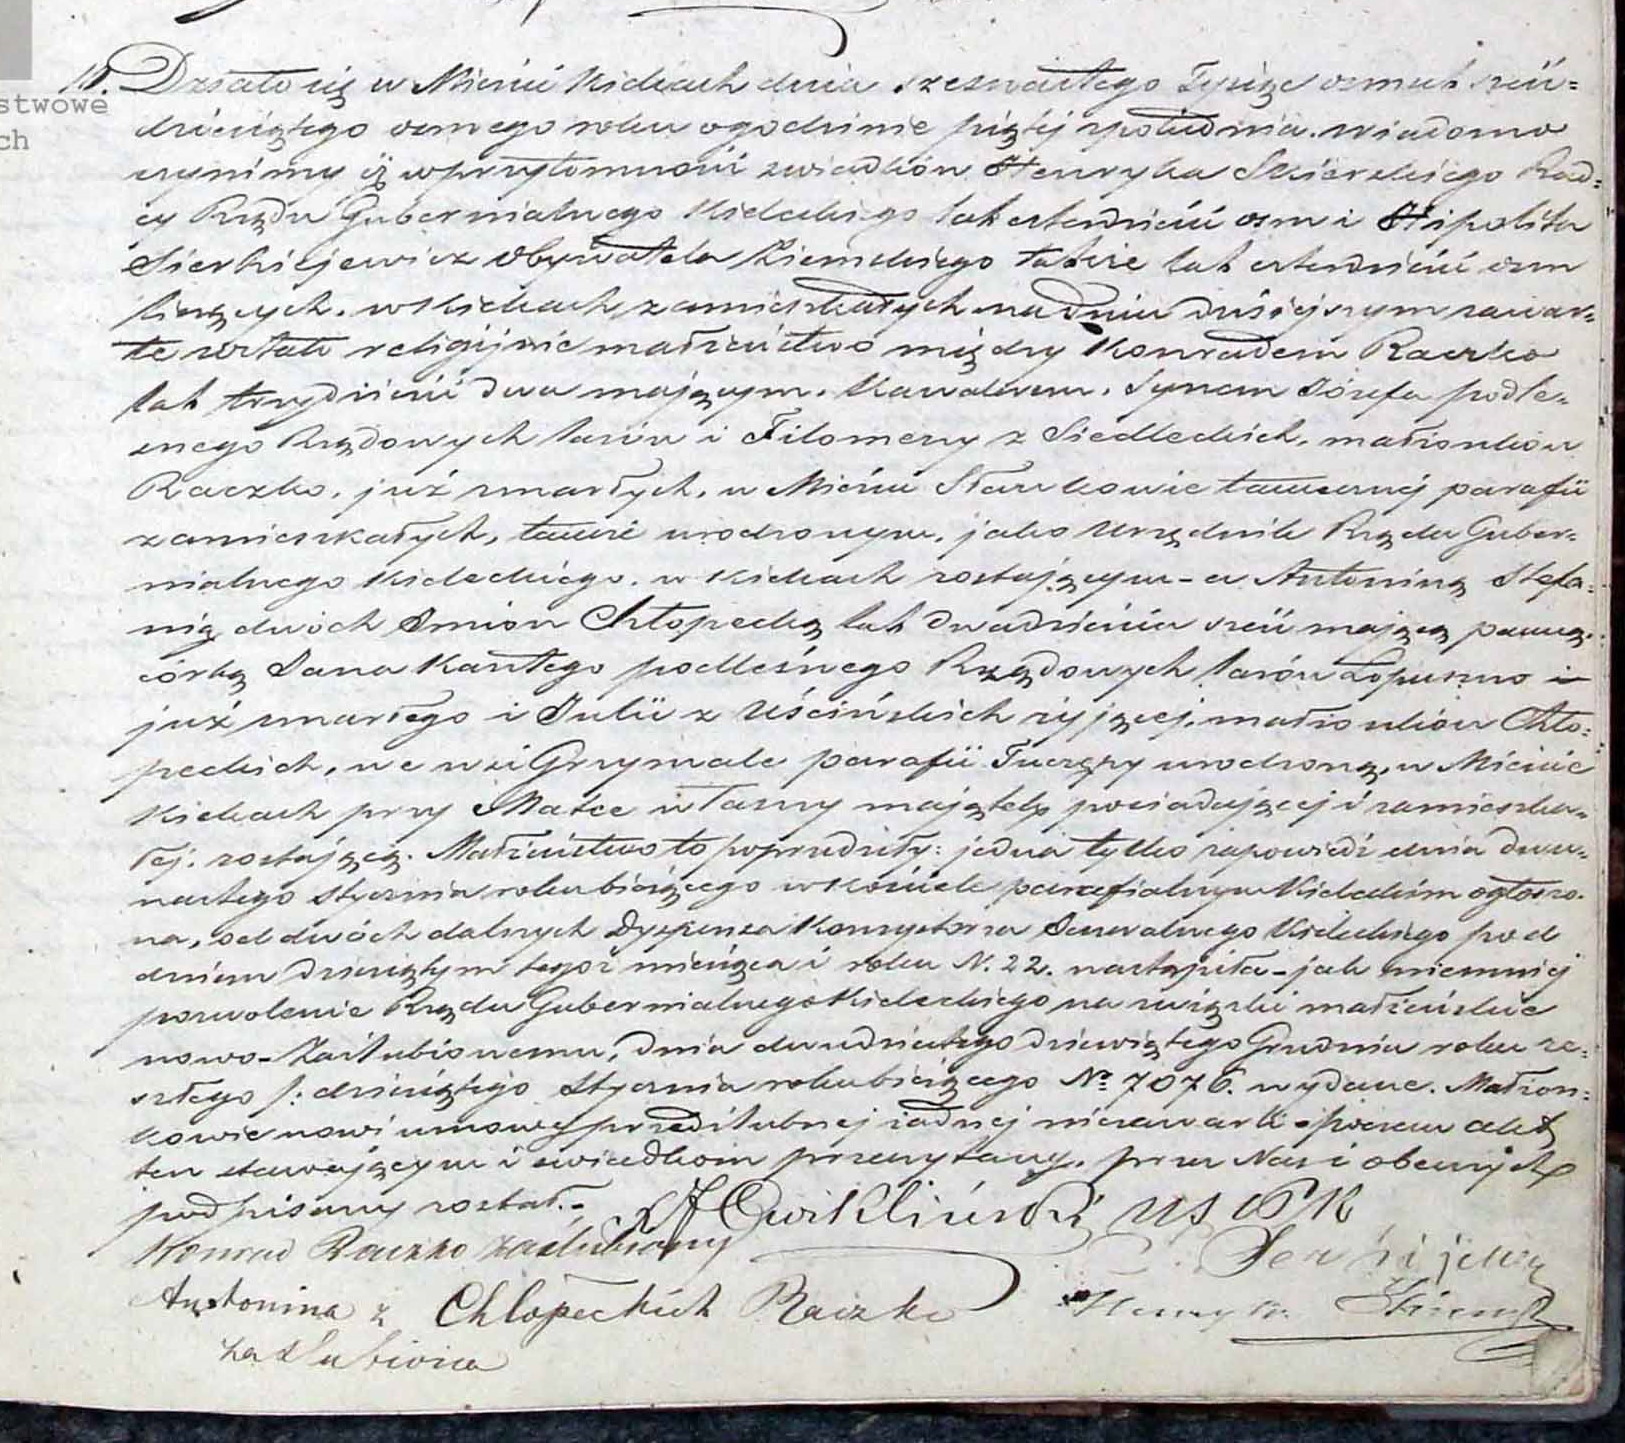 stwowe
ch
11. Działo się w Mieście Kielcach dnia szesnastego Tysiąc ośmset sześć=
dziesiątego ósmego roku o godzinie piątej z południa. Wiadomo
czynimy iż w przytomności świadków Henryka Skierskiego Rad=
cy Rządu Gubernialnego Kieleckiego lat czterdzieści ośm i Hipolita
Sierkiejewicz Obywatela Ziemskiego także lat czterdzieści ośm
liczących. w Kielcach zamieszkałych na dniu dzisiejszym zawar=
te zostało religijnie małżeństwo między Konradem Raczko
lat trzydzieści dwa mającym. Kawalerem. Synem Józefa podle=
snego Rządowych lasów i Filomeny z Siedleckich, małżonków
Raczko, już zmarłych. w Mieście Sławkowie tamecznej parafii
zamieszkałych, tamże urodzonym, jako Urzędnik Rządu Guber=
nialnego Kieleckiego. w Kielcach zostającym - a Antoniną Stefa=
nią dwóch Imion Chłopecką lat dwadzieścia sześć mającą panną.
córką Jana Kantego podleśnego Rządowych lasów Łopuszno i
już zmarłego i Julii z Uścińskich żyjącej, małżonków Chło=
peckich, we wsi Grzymale parafii Tuczępy urodzoną, w Mieście
Kielcach przy Matce własny majątek posiadającej i zamieszka=
łej. zostającą. Małżeństwo to poprzedziły: jedna tylko zapowiedź dnia dwu=
nastego stycznia roku bieżącego w kościele parafialnym Kieleckim ogłoszo=
na, od dwóch dalszych Dyspensa Konsystorza Jeneralnego Kieleckiego pod
dniem dziesiątym tegoż miesiąca i roku N. 22. nastąpiła - jak niemniej
pozwolenie Rządu Gubernialnego Kieleckiego na związki małżeńskie
nowo-Zaślubionemu, dnia dwudziestego dziewiątego Grudnia roku ze=
szłego /: dziesiątego Stycznia roku bieżącego No 7076. wydane. Małżon=
kowie nowi umowy przedślubnej żadnej niezawarli - poczem akt
ten stawającym i świadkom przeczytany. przez Nas i obecnych
podpisany został.-
X J Ćwikliński U S C P K
Konrad Raczko zaślubiony
Antonina z Chłopeckich Raczko
zaślubiona
Henryk